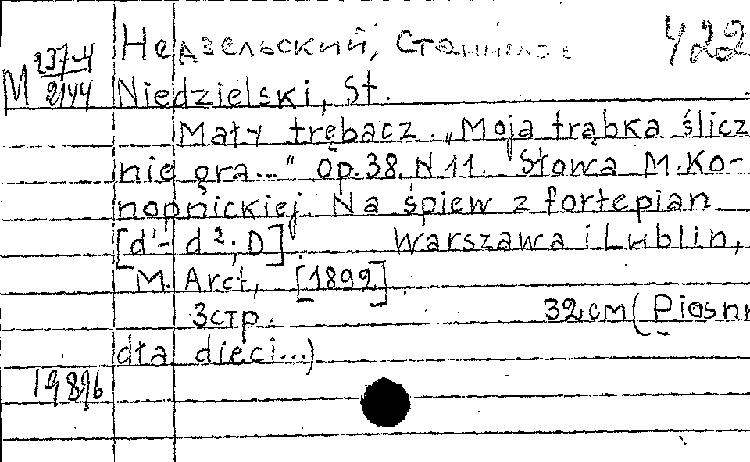 Недзельский, Станислав 422
М 237-4
2144
Niedzielski, St.
Mały trębacz. „Moja trąbka ślicz
nie gra..." Op.38. N 11. Słowa M.Ko-
nopnickiej. Na śpiew z fortepian
[d¹- d²; D]. Warszawa i Lublin,
M. Arct, [1899].
3стр. 32см (Piosnn
dła dieci...)